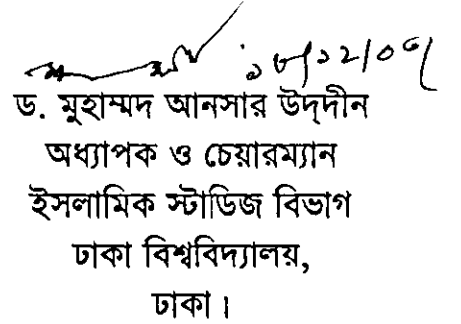 ড. মুহাম্মদ আনসার উদ্‌দীন
অধ্যাপক ও চেয়ারম্যান
ইসলামিক স্টাডিজ বিভাগ
ঢাকা বিশ্ববিদ্যালয়,
ঢাকা।